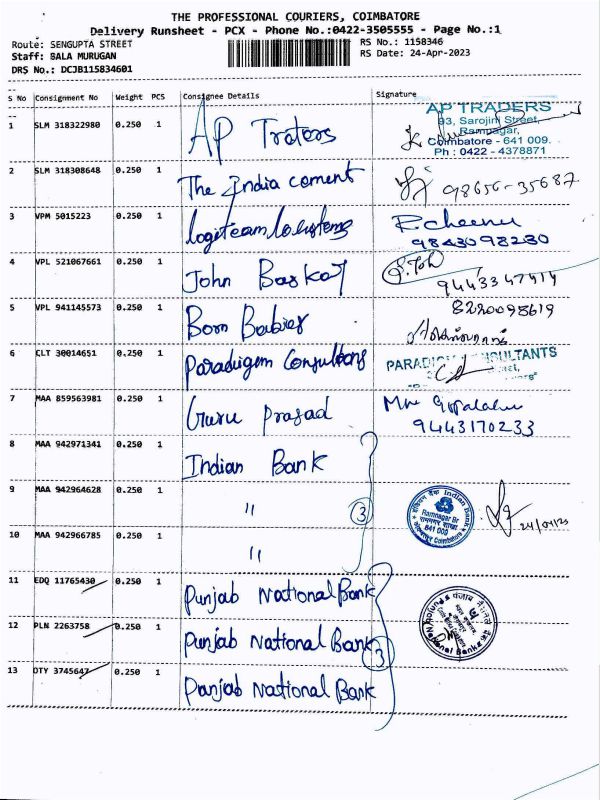 THE PROFESSIONAL COURIERS, COIMBATORE
Delivery Runsheet - PCX - Phone No.:0422-3505555 - Page No.:1
Route: SENGUPTA STREET
RS No.: 1158346
Staff: BALA MURUGAN
RS Date: 24-Apr-2023
DRS No.: DCJB115834601
S No Consignment No Weight PCS Consignee Details Signature
1 SLM 318322980 0.250 1 AP Traters
AP TRADERS
93, Sarojini Street,
Ramnagar,
Coimbatore - 641 009.
Ph : 0422 - 4378871
2 SLM 318308648 0.250 1 The India cement 98656-35687
3 VPM 5015223 0.250 1 Logiteam Lo R.cheenu
9843098230
4 VPL 521067661 0.250 1 John Baskar
9443347414
5 VPL 941145573 0.250 1 Born Babies 8220098619
6 CLT 30014651 0.250 1 Paradigem Consultens PARADIGM CONSULTANTS
7 MAA 859563981 0.250 1 Guru Prasad
9443170233
8 MAA 942971341 0.250 1 Indian Bank
9 MAA 942964628 0.250 1 " 3
इंडियन बैंक Indian Bank
Ramnagar Br
रामनगर शाखा
641 009
Coimbatore
24/04/23
10 MAA 942966785 0.250 1 "
11 EDQ 11765430 0.250 1 Punjab National Bank
12 PLN 2263758 0.250 1 Punjab National Bank 3
13 DTY 3745647 0.250 1 Punjab National Bank